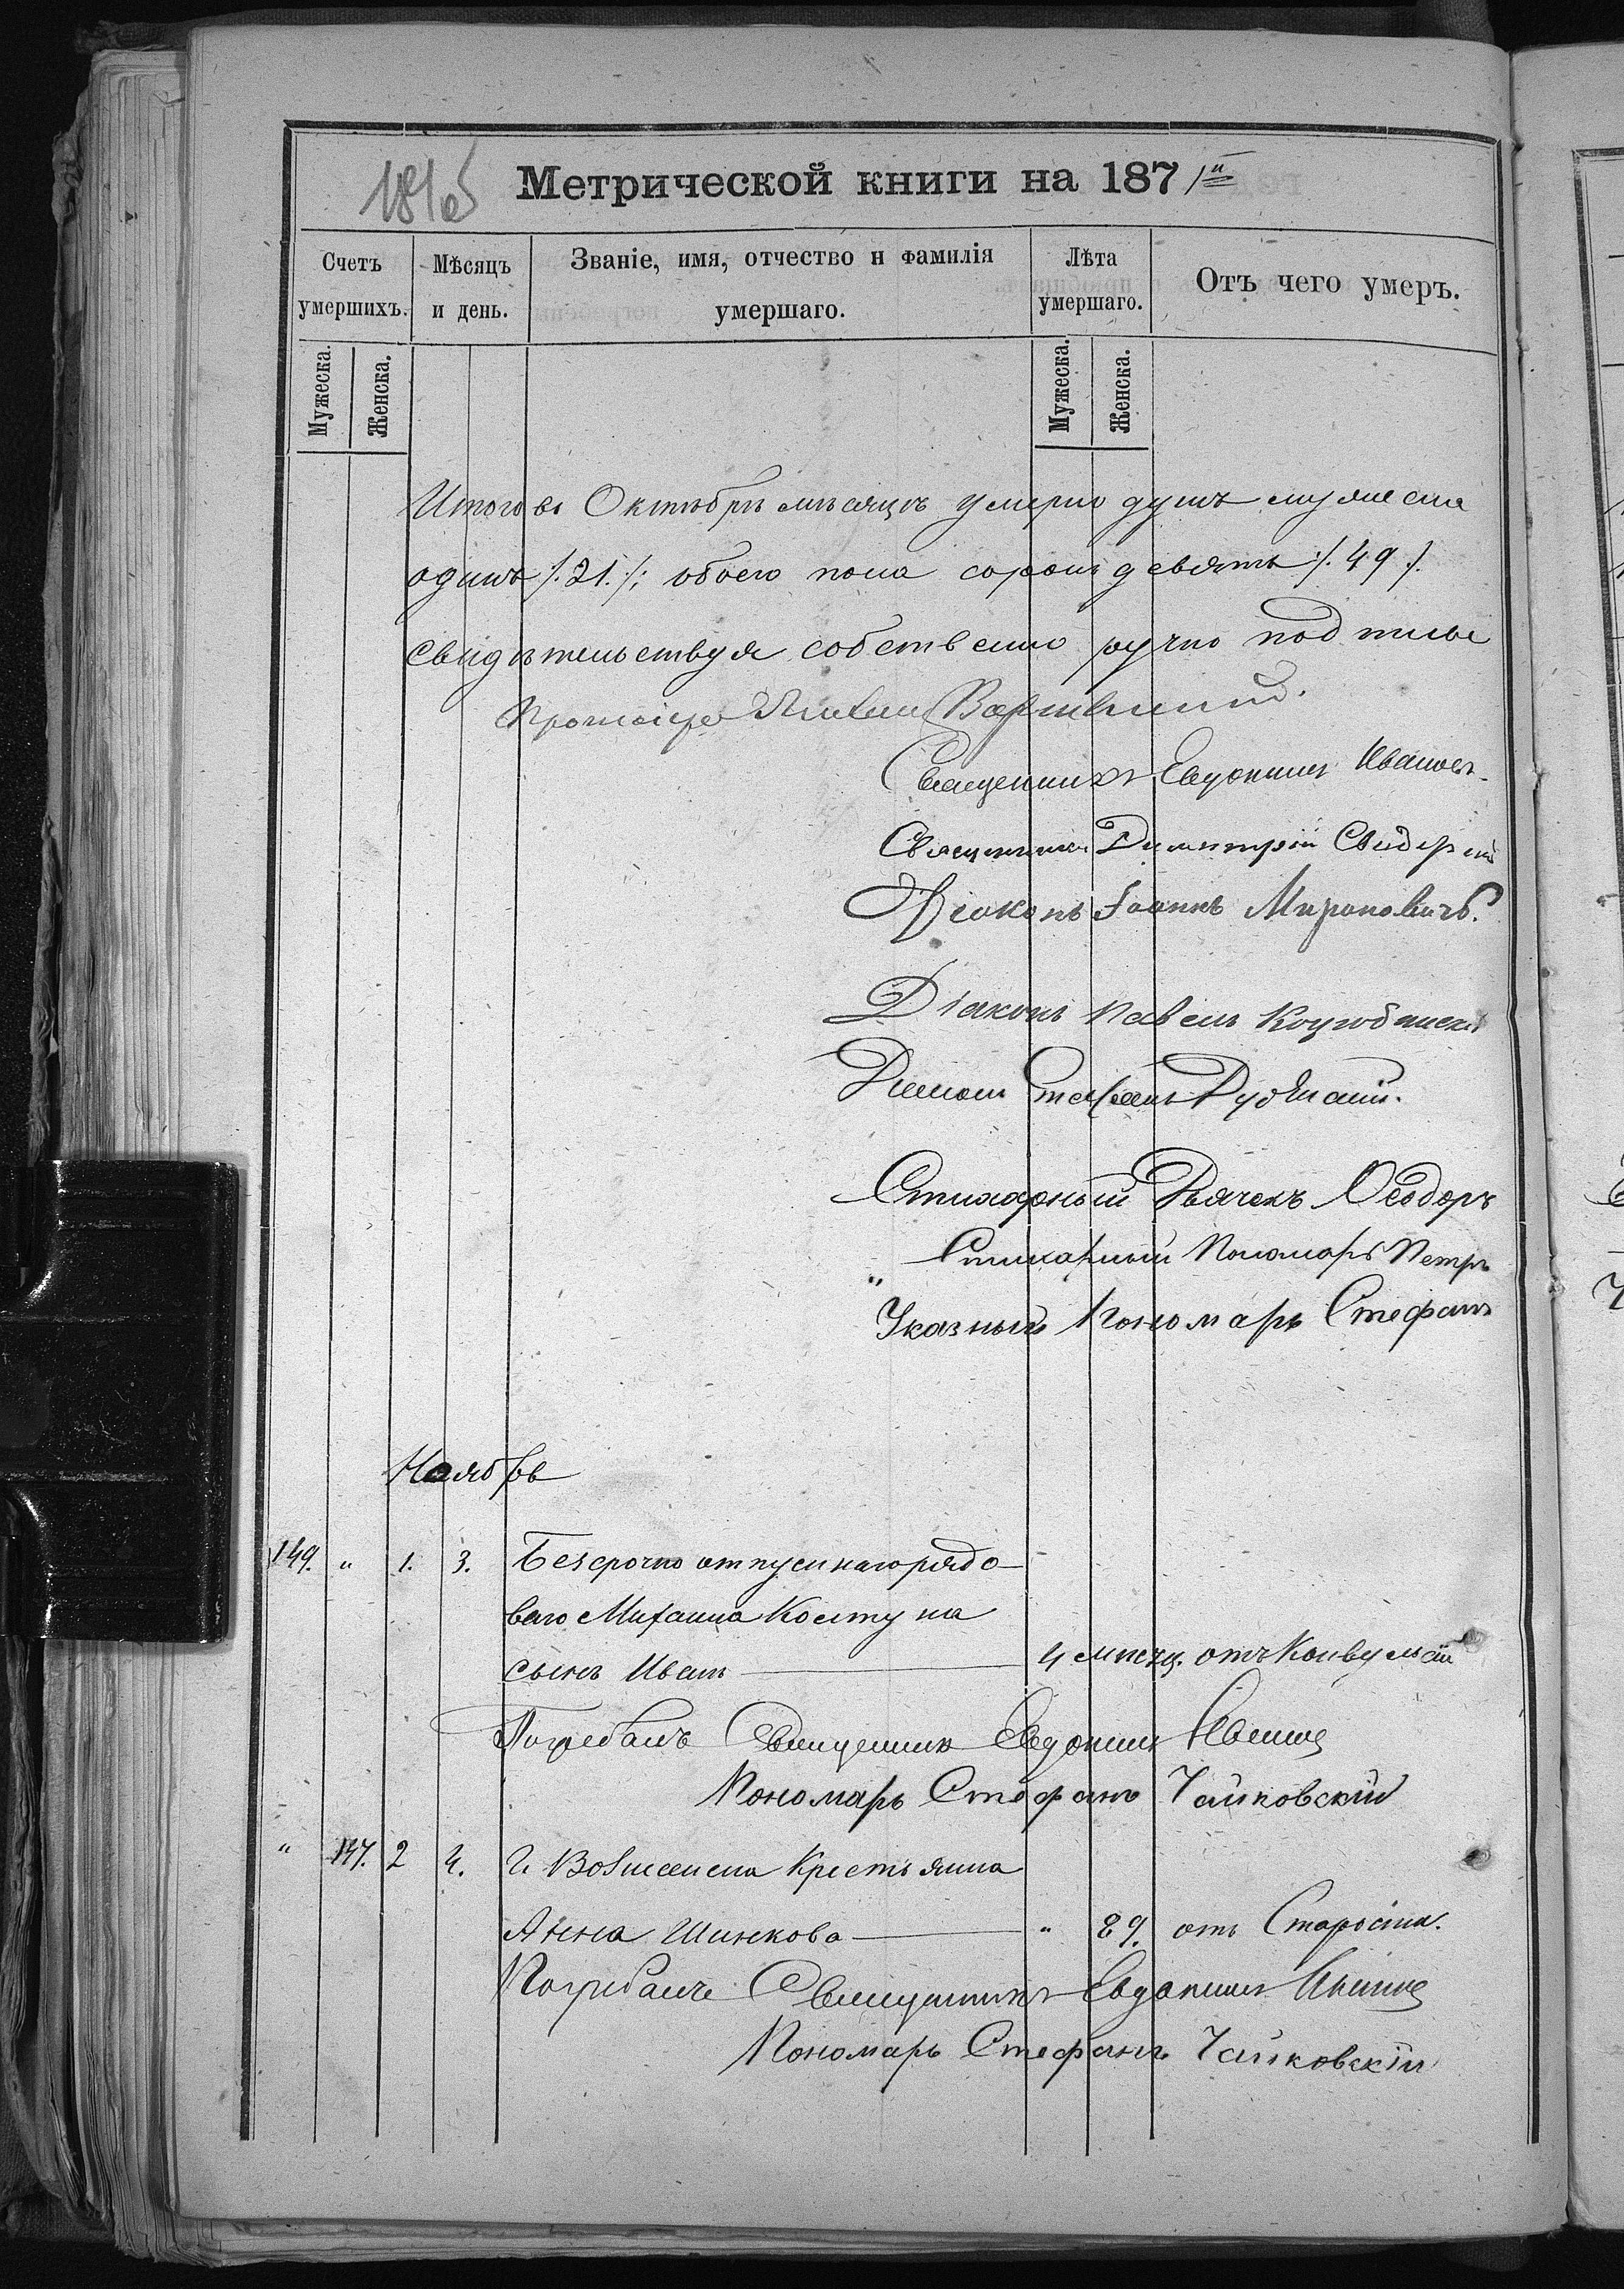 Метрической книги на 1871й
Счетъ умершихъ.
Мѣсяцъ и день.
Званіе, имя, отчество и фамилія умершаго.
Лѣта умершаго.
Отъ чего умеръ.
Мужеска.
Женска.
Мужеска.
Женска.
Итого въ Октябрѣ мѣсяцѣ умерло душъ мужеска
одинъ /.21./; обоего пола сорокъ девять /.49./
свидѣтельствуя собственно ручно подписы
Протоіерей
Священникъ Евдокимъ Ивановъ
Священникъ Димитрій
Діаконъ Іоаннъ Мироновичъ.
Діаконъ Павелъ
Діаконъ Стефанъ
Стихарный Дьячекъ Ѳеодоръ
Стихарный Пономарь Петръ
„ Указный Пономарь Стефанъ
Ноябрь
149. „ 1. 3. Безсрочно отпускнаго рядо-
ваго Михаила Колтуна
сынъ Иванъ — 4 мѣсяц. отъ Конвульсій
Погребалъ Священникъ Евдокимъ Ивановъ
Пономарь Стефанъ Чайковскій
„ 147. 2 4. Г. Вознесенска Крестьянка
Анна Шинкова — „ 89. отъ Старости.
Погребалъ Священникъ Евдокимъ Ивановъ
Пономарь Стефанъ Чайковскій